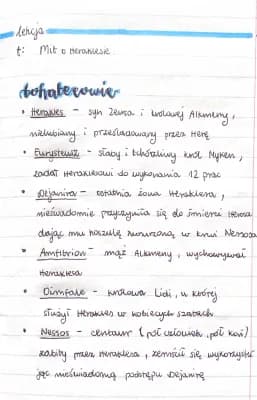 lekcja
t: Mit o Heraklesie
bohaterowie
• Herakles – syn Zeusa i królowej Alkmeny,
nielubiany i prześladowany przez Herę
• Eurysteusz – słaby i tchórzliwy król Myken,
zadał Heraklesowi do wykonania 12 prac
• Dejanira – ostatnia żona Heraklesa,
nieświadomie przyczyniła się do śmierci Heraa
dając mu koszulę nurzoną w krwi Nessosa
• Amfitrion – mąż Alkmeny, wychowywał
Heraklesa
• Omfale – królowa Lidi, u której
służył Herakles w kobiecych szatach
• Nessos – centaur (pół człowiek, pół koń)
zabity przez Heraklesa, zemścił się wykorzystu
jąc nieświadomą podstępu Dejanirę